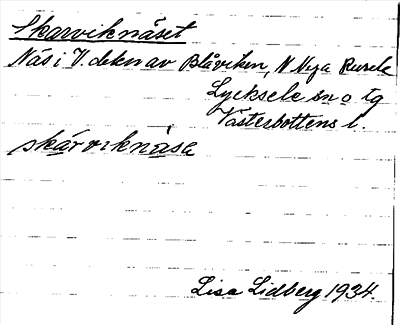 Skarviknäset
Näs i V. delen av Blåviken, N Nya Rusele
Lycksele sn o tg
Västerbottens l.
skárviknäsa
Lisa Lidberg 1934.